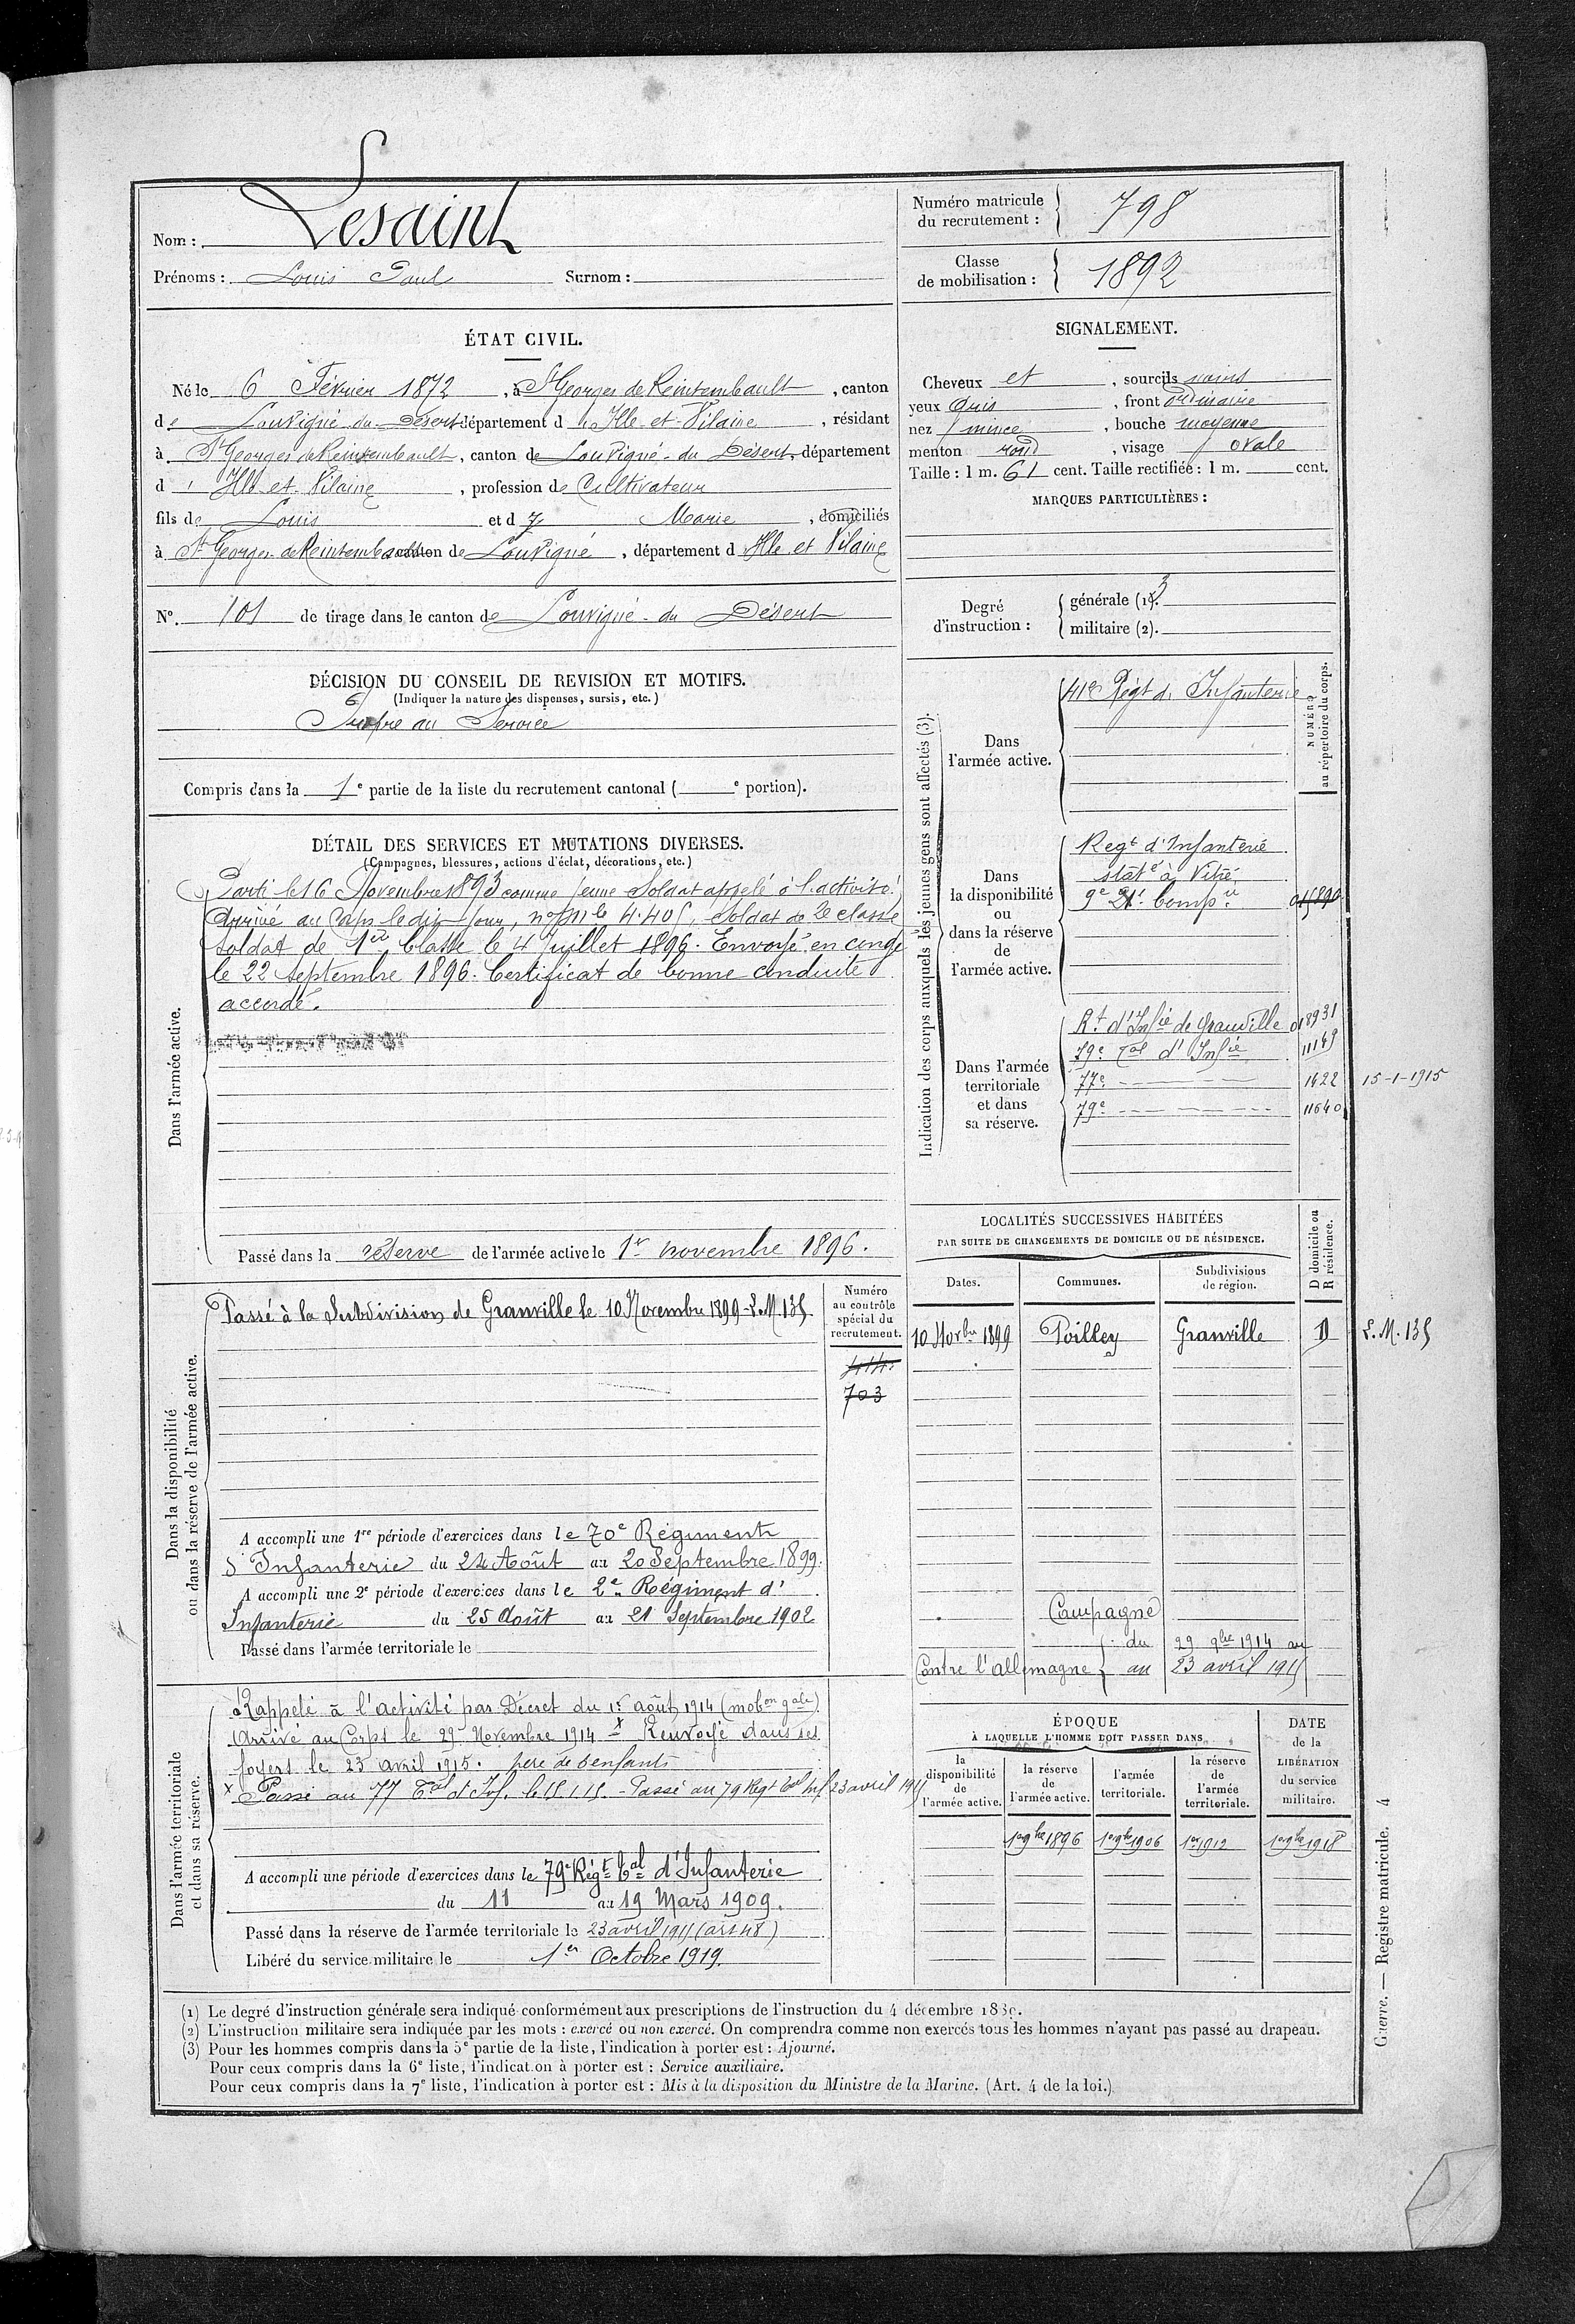 Nom : Lesaint
Prénoms : Louis Paul Surnom :
Numéro matricule du recrutement : 798
Classe de mobilisation : 1892
ÉTAT CIVIL.
Né le 6 Février 1872, à St Georges de Reintembault, canton
de Louvigné du Désert département d'Ille et Vilaine, résidant
à St Georges de Reintembault, canton de Louvigné du Désert, département
d'Ille et Vilaine, profession de Cultivateur
fils de Louis et d Marie, domiciliés
à St Georges de Reintembault canton de Louvigné, département d'Ille et Vilaine
No. 101 de tirage dans le canton de Louvigné du Désert
SIGNALEMENT.
Cheveux et, sourcils noirs
yeux Gris, front ordinaire
nez mince, bouche moyenne
menton rond, visage ovale
Taille : 1 m. 61 cent. Taille rectifiée : 1 m. cent.
MARQUES PARTICULIÈRES :
Degré d'instruction :
générale (1). 3
militaire (2).
DÉCISION DU CONSEIL DE REVISION ET MOTIFS.
(Indiquer la nature des dispenses, sursis, etc.)
Propre au Service
Compris dans la 1e partie de la liste du recrutement cantonal ( e portion).
DÉTAIL DES SERVICES ET MUTATIONS DIVERSES.
(Campagnes, blessures, actions d'éclat, décorations, etc.)
Dans l'armée active.
Parti le 16 Novembre 1893 comme jeune Soldat appelé à l'activité
Arrivé au Corps ledit jour, no mle 4.405, Soldat de 2e classe
Soldat de 1ère Classe le 4 Juillet 1896. Envoyé en congé
le 22 Septembre 1896. Certificat de bonne conduite
accordé.
Passé dans la réserve de l'armée active le 1er novembre 1896.
Indication des corps auxquels les jeunes gens sont affectés (3).
NUMÉRO au répertoire du corps.
Dans l'armée active.
41e Régt d'Infanterie
Dans la disponibilité ou dans la réserve de l'armée active.
Regt d'Infanterie
staté à Vitré
9e 21e Compie 015890
Dans l'armée territoriale et dans sa réserve.
Rt d'Infie de Granville 018931
79e Tal d'Infie 11149
77e 1422 15-1-1915
79e 11640
LOCALITÉS SUCCESSIVES HABITÉES
PAR SUITE DE CHANGEMENTS DE DOMICILE OU DE RÉSIDENCE.
Dates. Communes. Subdivisions de région. D domicile ou R résidence.
10 Novbre 1899 Poilley Granville D L.M. 135
Campagne
Contre l'allemagne du 29 9bre 1914 au
au 23 avril 1915
Dans la disponibilité ou dans la réserve de l'armée active.
Numéro au contrôle spécial du recrutement.
703
Passé à la Subdivision de Granville le 10 Novembre 1899 - L.M. 135.
A accompli une 1re période d'exercices dans le 70e Régiment
d'Infanterie du 24 Août au 20 Septembre 1899.
A accompli une 2e période d'exercices dans le 2e Régiment d'
Infanterie du 25 Août au 21 Septembre 1902
Passé dans l'armée territoriale le
Dans l'armée territoriale et dans sa réserve.
Rappelé à l'activité par Décret du 1er août 1914 (mobon gale)
Arrivé au Corps le 29 Novembre 1914 x Renvoyé dans ses
foyers le 23 avril 1915. père de enfants
x Passé au 77 Tal d'Inf. le 15.1.15. - Passé au 79 Regt Tal Inf 23 avril 1915
A accompli une période d'exercices dans le 79e Régt Tal d'Infanterie
du 11 au 19 Mars 1909.
Passé dans la réserve de l'armée territoriale le 23 avril 1915 (art 48)
Libéré du service militaire le 1er Octobre 1919.
ÉPOQUE
À LAQUELLE L'HOMME DOIT PASSER DANS
la disponibilité de l'armée active. la réserve de l'armée active. l'armée territoriale. la réserve de l'armée territoriale.
DATE de la LIBÉRATION du service militaire.
1er 9bre 1896 1er 9bre 1906 1er 1912 1er 9bre 1918
(1) Le degré d'instruction générale sera indiqué conformément aux prescriptions de l'instruction du 4 décembre
(2) L'instruction militaire sera indiquée par les mots : exercé ou non exercé. On comprendra comme non exercés tous les hommes n'ayant pas passé au drapeau.
(3) Pour les hommes compris dans la 5e partie de la liste, l'indication à porter est : Ajourné.
Pour ceux compris dans la 6e liste, l'indication à porter est : Service auxiliaire.
Pour ceux compris dans la 7e liste, l'indication à porter est : Mis à la disposition du Ministre de la Marine. (Art. 4 de la loi.)
Guerre. — Registre matricule. 4